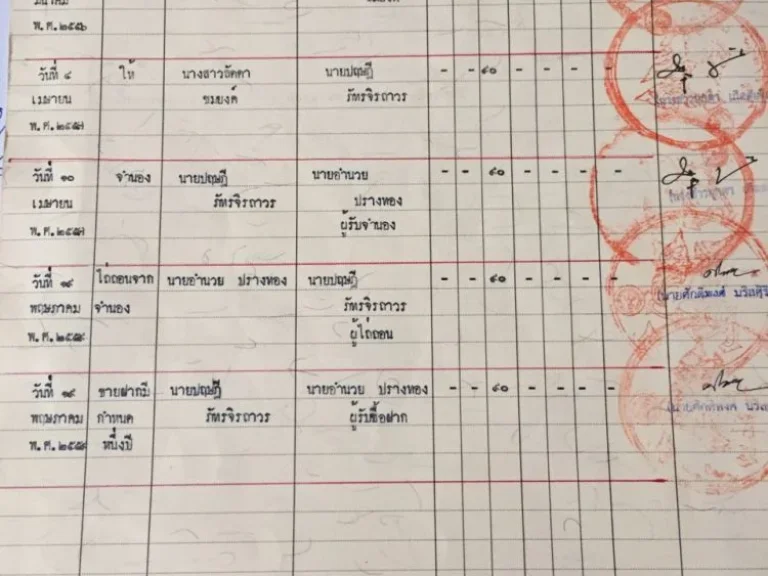 พ.ศ.๒๕๕๖
วันที่ ๔ ให้ นางสาวลัดดา นายปฤษฎี - - ๔๐ - - - -
เมษายน ชมยงค์ ภัทรจิรถาวร
พ.ศ.๒๕๕๗
วันที่ ๑๐ จำนอง นายปฤษฎี นายอำนวย - - ๔๐ - - - -
เมษายน ภัทรจิรถาวร ปรางทอง
พ.ศ.๒๕๕๗ ผู้รับจำนอง
วันที่ ๑๙ ไถ่ถอนจาก นายอำนวย ปรางทอง นายปฤษฎี - - ๔๐ - - - -
พฤษภาคม จำนอง ภัทรจิรถาวร
พ.ศ.๒๕๕๙ ผู้ไถ่ถอน
วันที่ ๑๙ ขายฝากมี นายปฤษฎี นายอำนวย ปรางทอง - - ๔๐ - - - -
พฤษภาคม กำหนด ภัทรจิรถาวร ผู้รับซื้อฝาก
พ.ศ.๒๕๕๙ หนึ่งปี